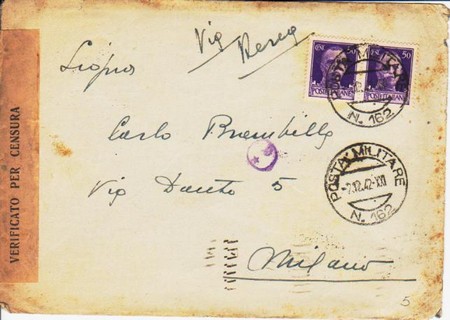 Via Aerea
50
POSTE ITALIANE
POSTE ITALIANE
POSTA MILITARE
N. 162
VERIFICATO PER CENSURA
Carlo Brambilla
Via Dante 5
POSTA MILITARE
-7.12.42-XXI
N. 162
Milano
5